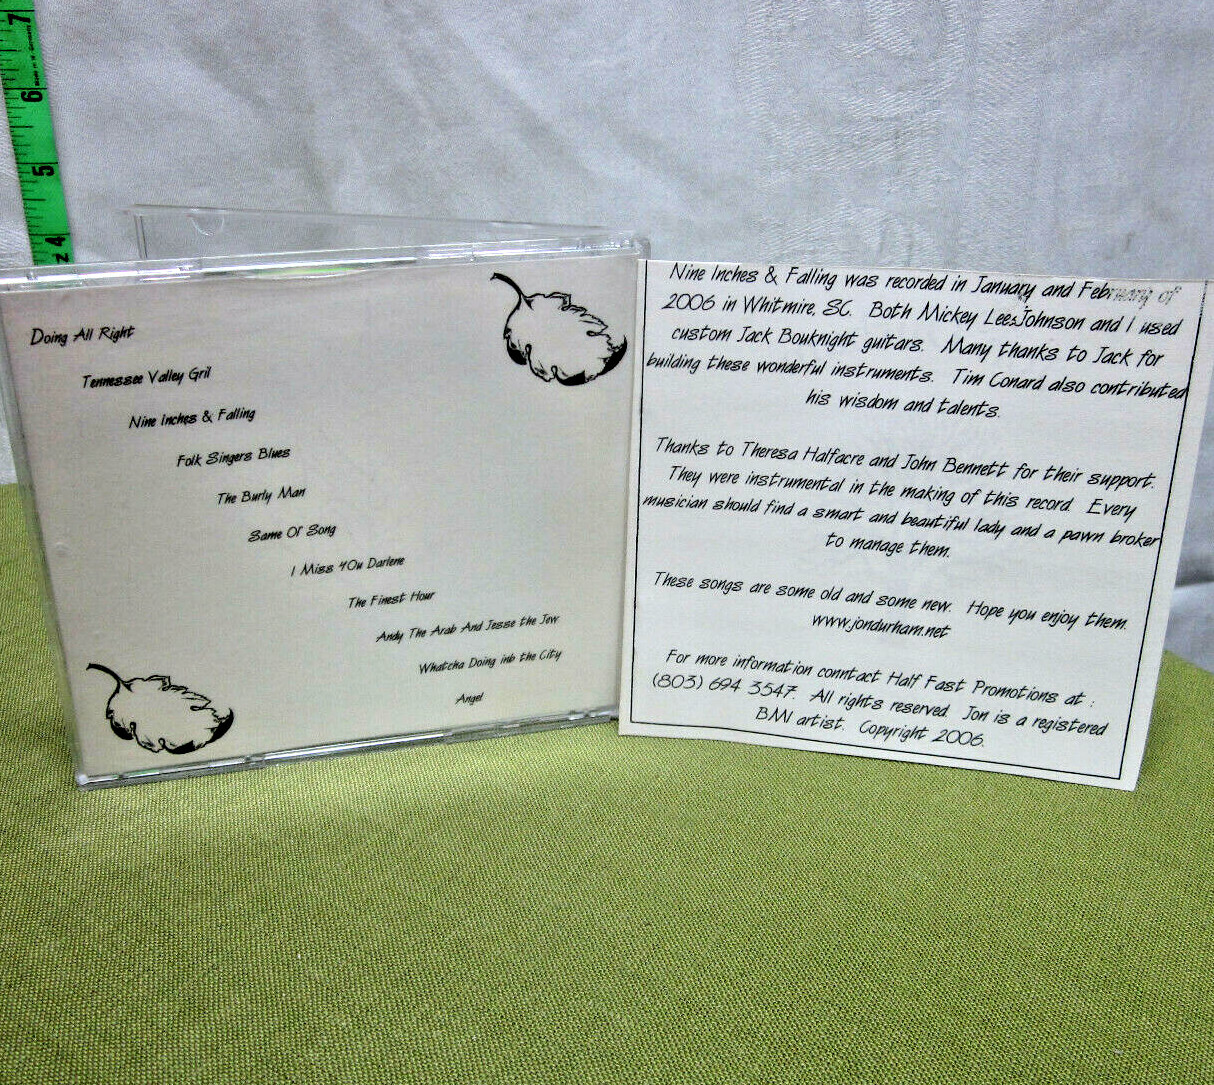 7
6
5
4
Doing All Right
Tennessee Valley Gril
Nine Inches & Falling
Folk Singers Blues
The Burly Man
Same Ol' Song
I Miss YOu Darlene
The Finest Hour
Andy The Arab And Jesse the Jew
Whatcha Doing inb the City
Angel
Nine Inches & Falling was recorded in January and February of
2006 in Whitmire, SC. Both Mickey Lee Johnson and I used
custom Jack Bouknight guitars. Many thanks to Jack for
building these wonderful instruments. Tim Conard also contributed
his wisdom and talents.
Thanks to Theresa Halfacre and John Bennett for their support.
They were instrumental in the making of this record. Every
musician should find a smart and beautiful lady and a pawn broker
to manage them.
These songs are some old and some new. Hope you enjoy them.
www.jondurham.net
For more information conntact Half Fast Promotions at :
(803) 694 3547. All rights reserved. Jon is a registered
BMI artist. Copyright 2006.